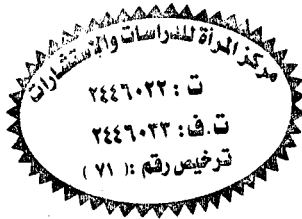 مركز المرأة للدراسات والإستشارات
ت : ٢٤٤٦٠٢٢
ت.ف: ٢٤٤٦٠٣٣
ترخيص رقم :( ٧١ )